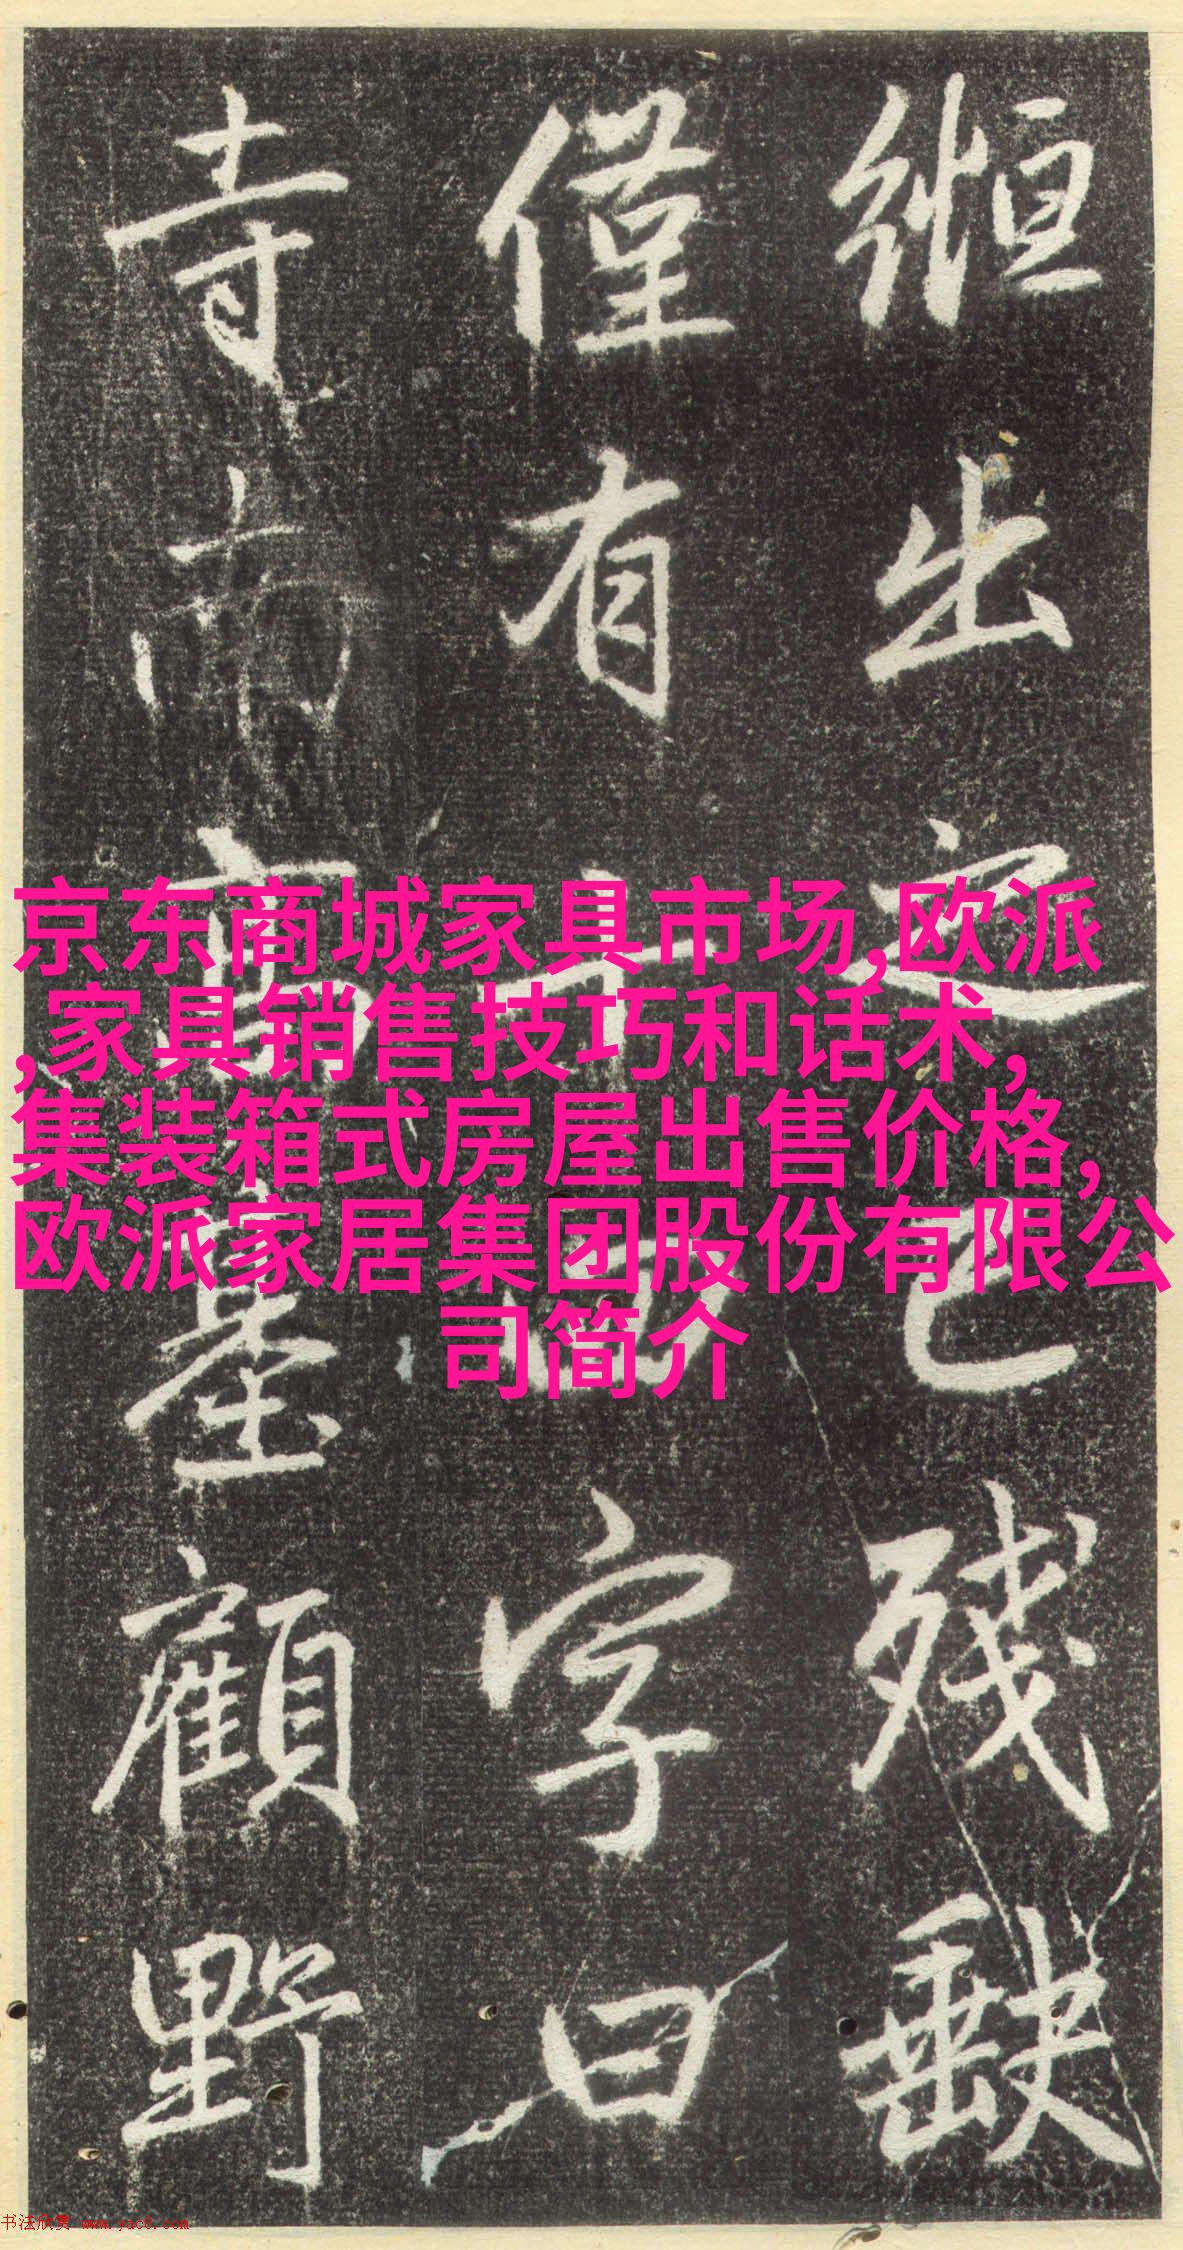 縆出之已殘缺
僅有十四字曰
寺南高基顧野
京东商城家具市场,欧派
,家具销售技巧和话术,
集装箱式房屋出售价格,
欧派家居集团股份有限公
司简介
书法欣赏 www.yac8.com